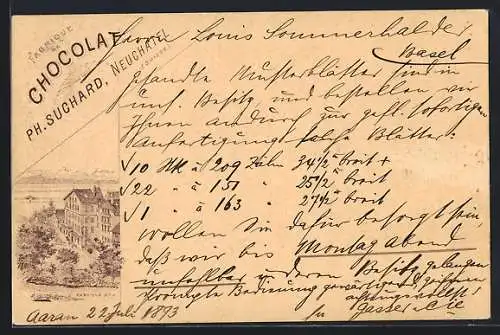 FABRIQUE
DE
CHOCOLAT
PH. SUCHARD, NEUCHATEL
(SUISSE)
Herrn Louis Sommerhalder
Basel
gesandte Musterblätter sind in
uns. Besitz und bestellen wir
Ihnen andurch zur gefl. sofortigen
Anfertigung solche Blätter:
√ 10 Stk à 209 Zähn 34½ breit +
√ 22 " à 151 " 25½ à breit
√ 1 " à 163 " 27½ breit
Wollen Sie dafür besorgt sein,
daß wir bis Montag Abend
unfehlbar in deren Besitz gelangen
Bedienung gewärtigend zeichnen
achtungsvollst
Aarau 22 Juli 1893
Gasser & Cie